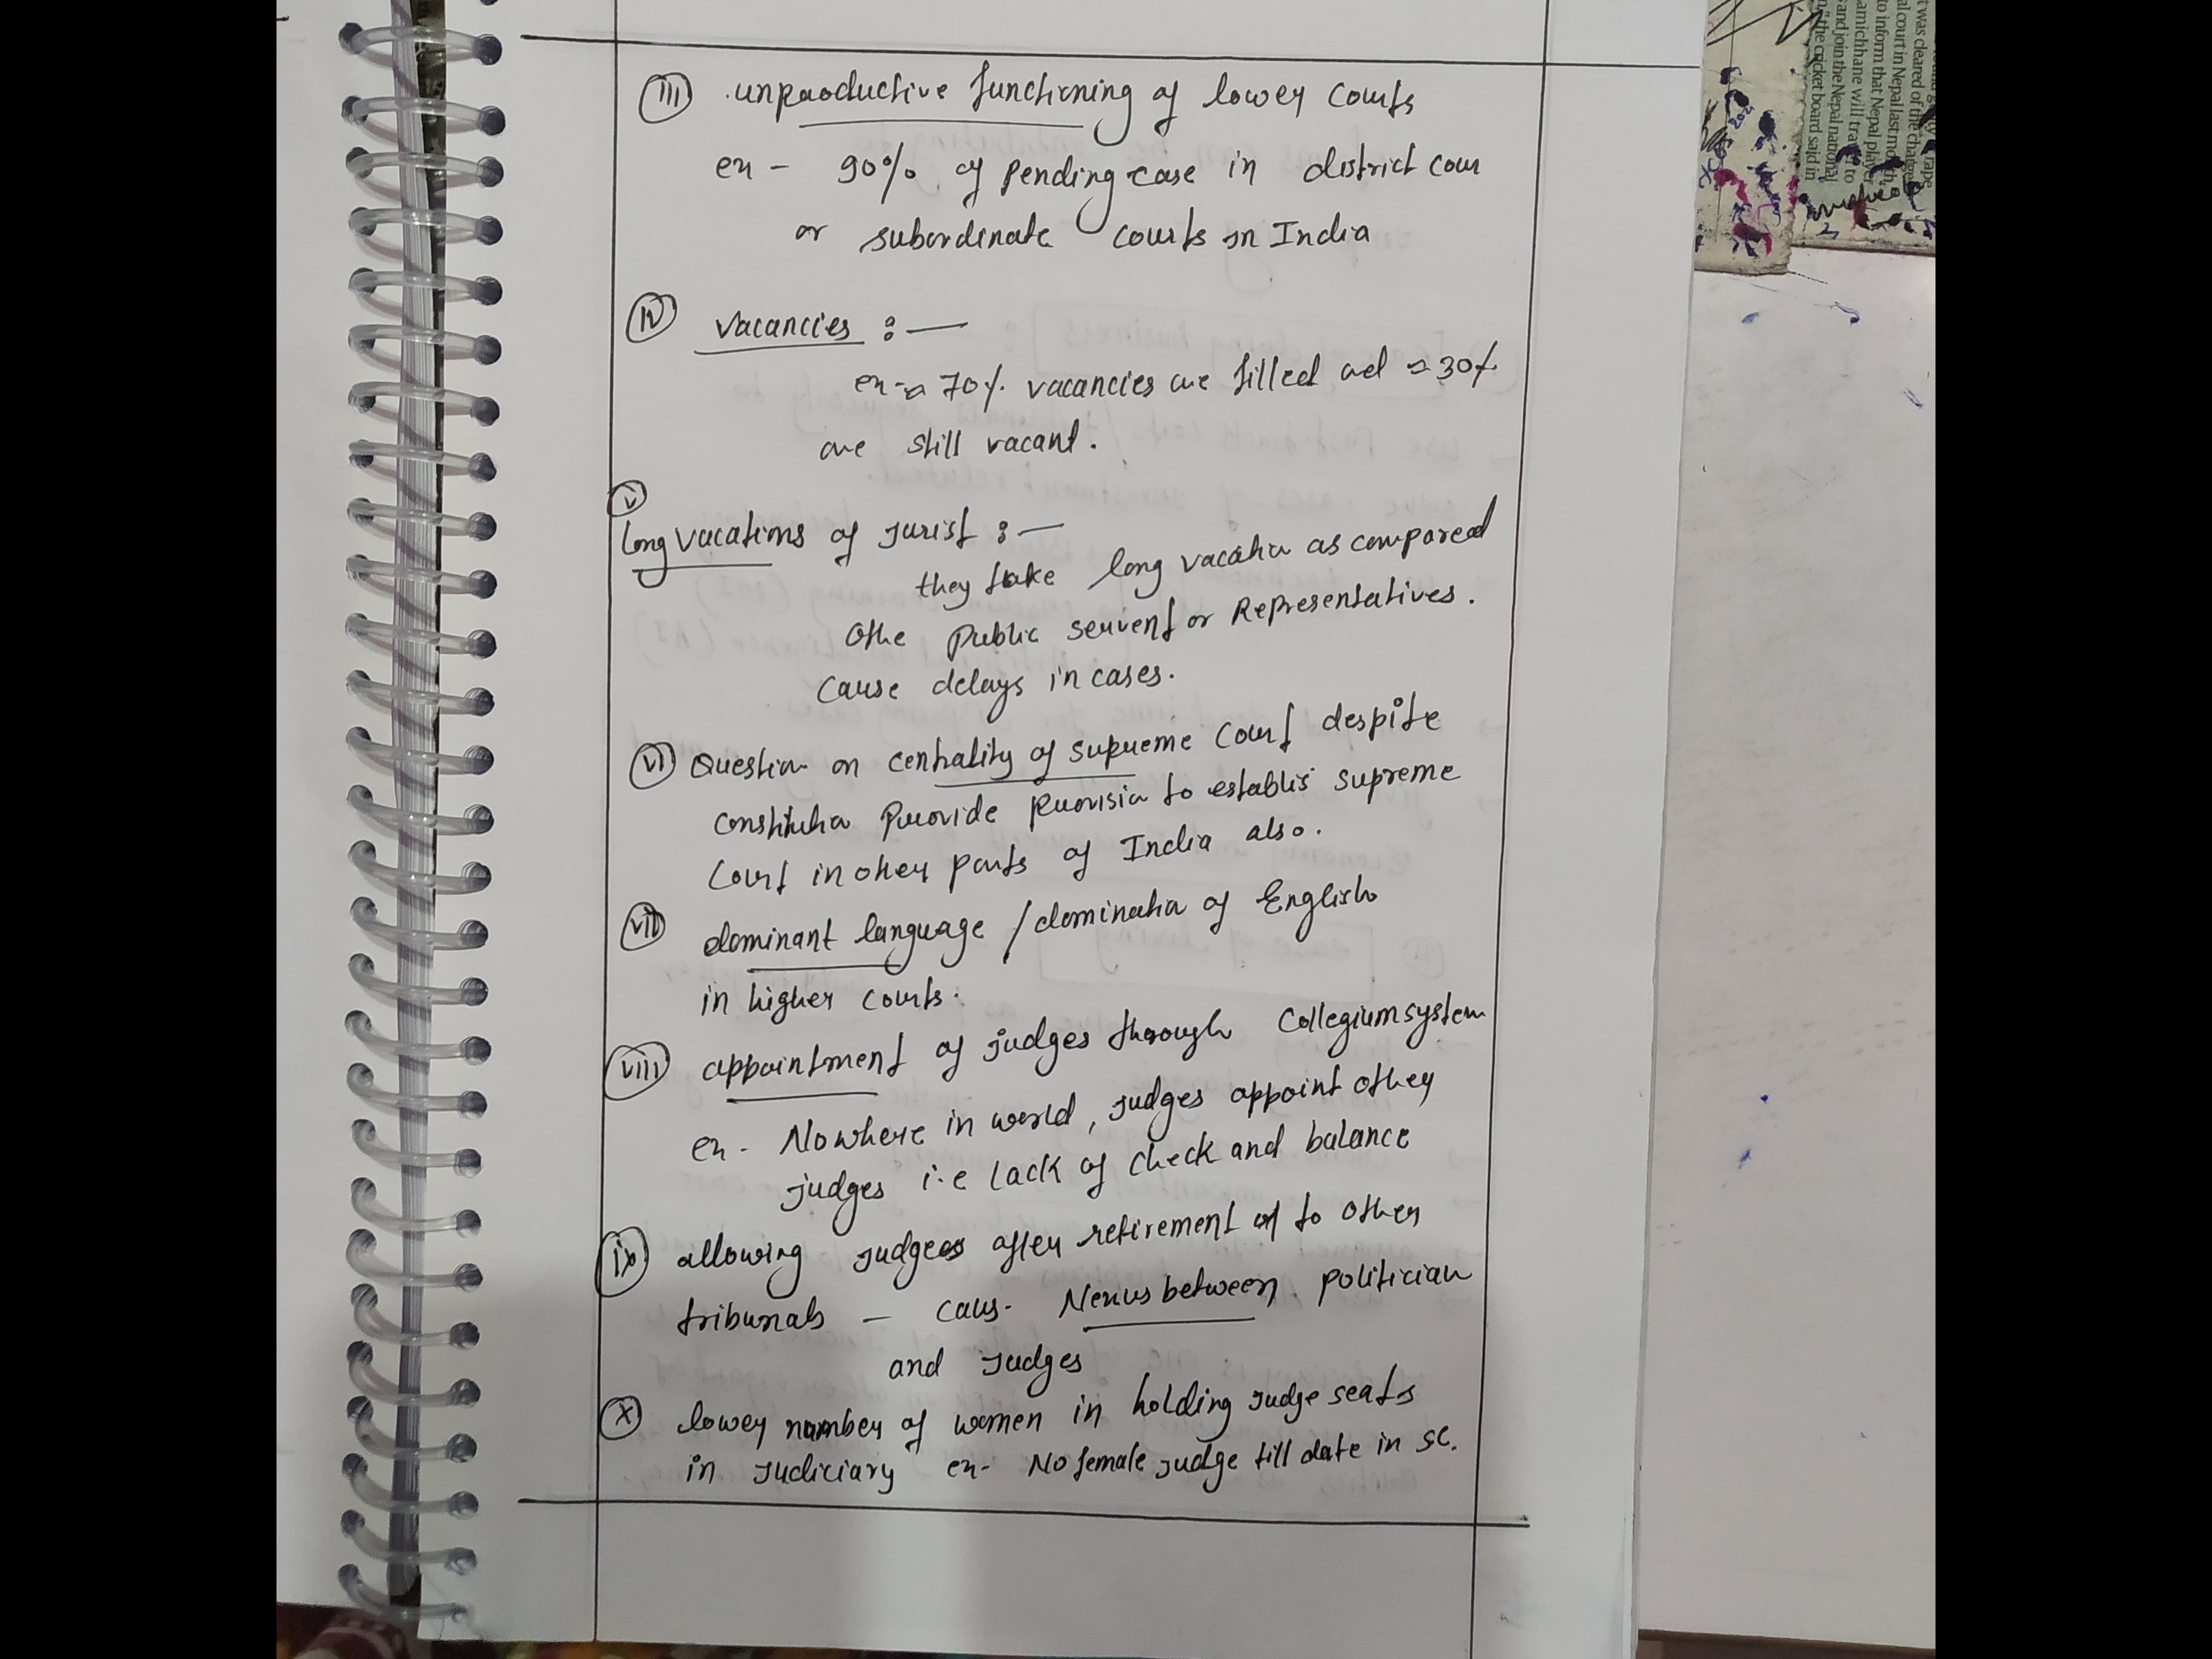 (iii) unproductive functioning of lower courts
ex - 90% of pending case in district cour
or subordinate courts in India
(iv) vacancies :—
ex- ≈ 70% vacancies are filled and ≈ 30%
are still vacant.
(v)
long vacations of jurist :—
they take long vacation as compared
othe public servent or Representatives.
cause delays in cases.
(vi) Question on centrality of supreme court despite
constitution provide provision to establis supreme
court in other parts of India also.
(vii) dominant language / domination of English
in higher courts.
(viii) appointment of judges through collegium system
ex - Nowhere in world, judges appoint other
judges i.e lack of check and balance
(ix) allowing judges after retirement to other
tribunals — caus- Nexus between politician
and judges
(x) lower number of women in holding judge seats
in judiciary ex- No female judge till date in SC.
t was cleared of the charges
al court in Nepal last month,
to inform that Nepal player
amichhane will travel to
and join the Nepal national
the cricket board said in
rape